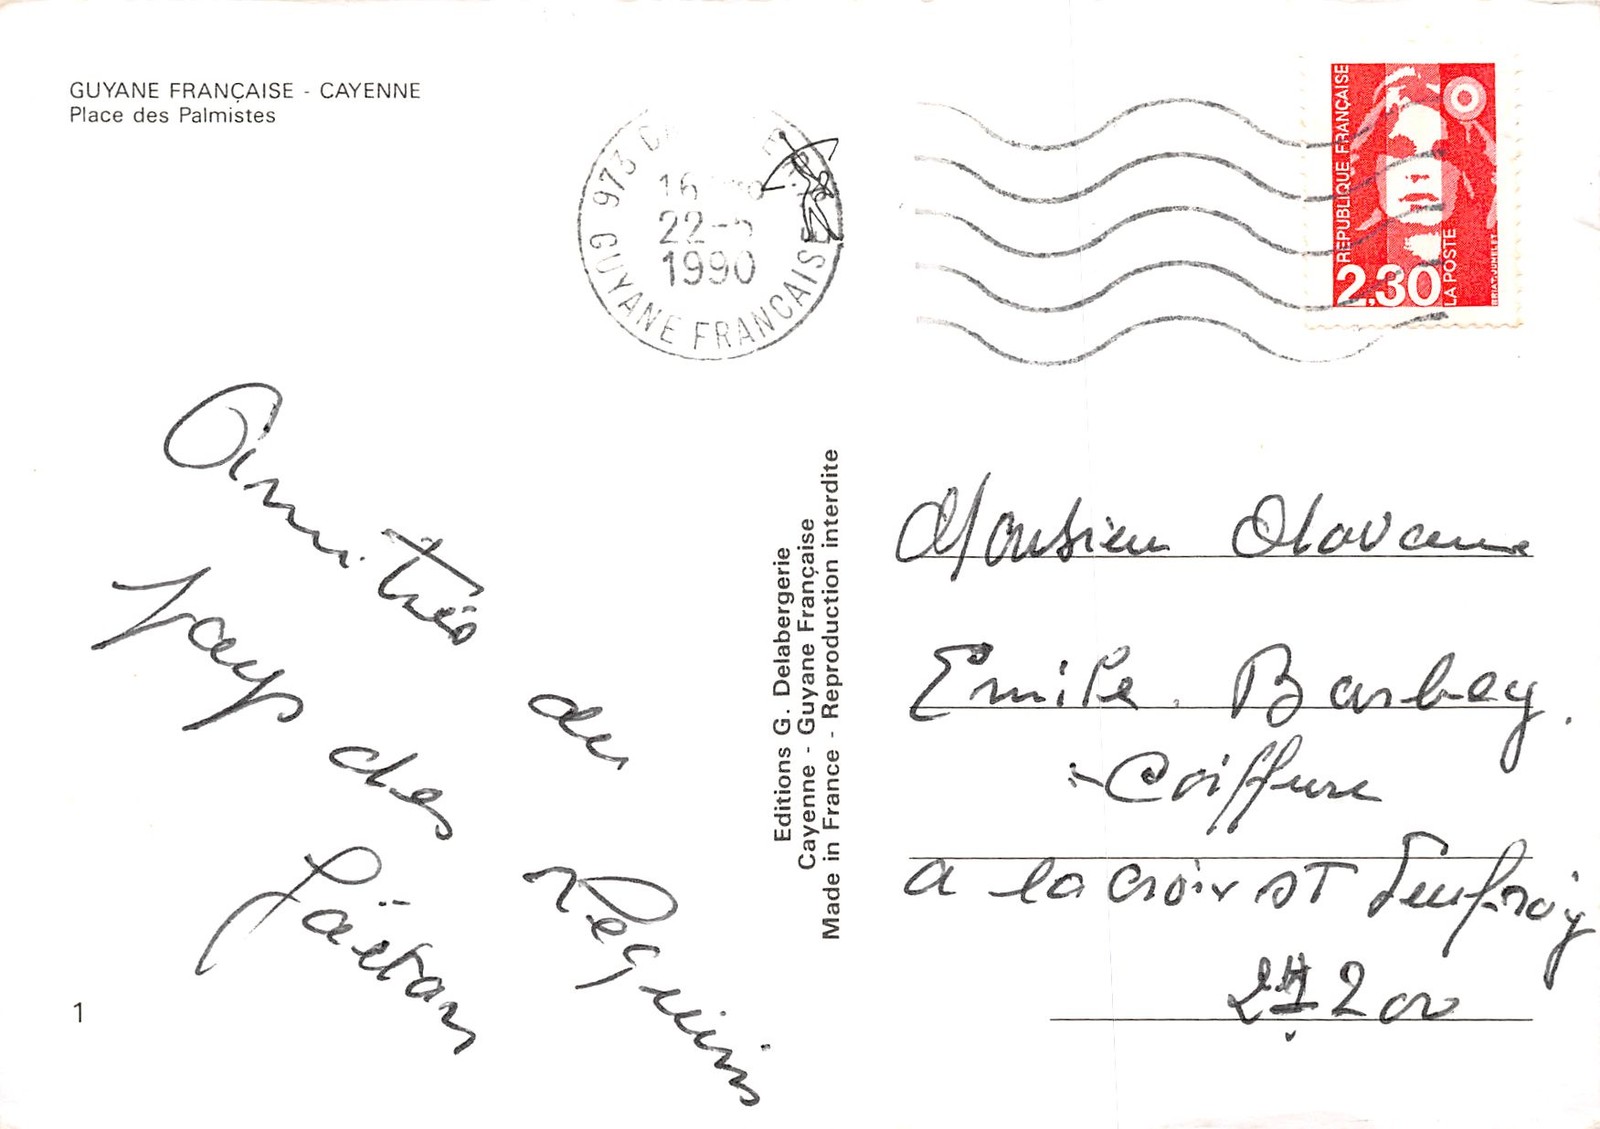 GUYANE FRANÇAISE - CAYENNE
Place des Palmistes
973
16
22-5
1990
GUYANE FRANCAISE
REPUBLIQUE FRANÇAISE
LA POSTE
2.30
BRIAT.JUMELET
Amitiés du
pays des
Requins
Gaëtan
1
Editions G. Delabergerie
Cayenne - Guyane Française
Made in France - Reproduction interdite
Monsieur
Emile Barbey.
- Coiffure
a la croix st Leufroy
200